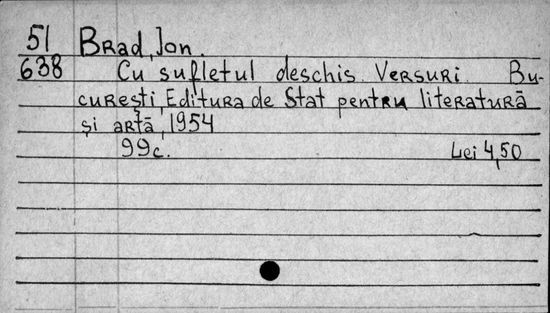 51 Brad, Ion.
638 Cu sufletul deschis. Versuri. Bu-
curești, Editura de Stat pentru literatură
și artă, 1954
99c. Lei 4,50